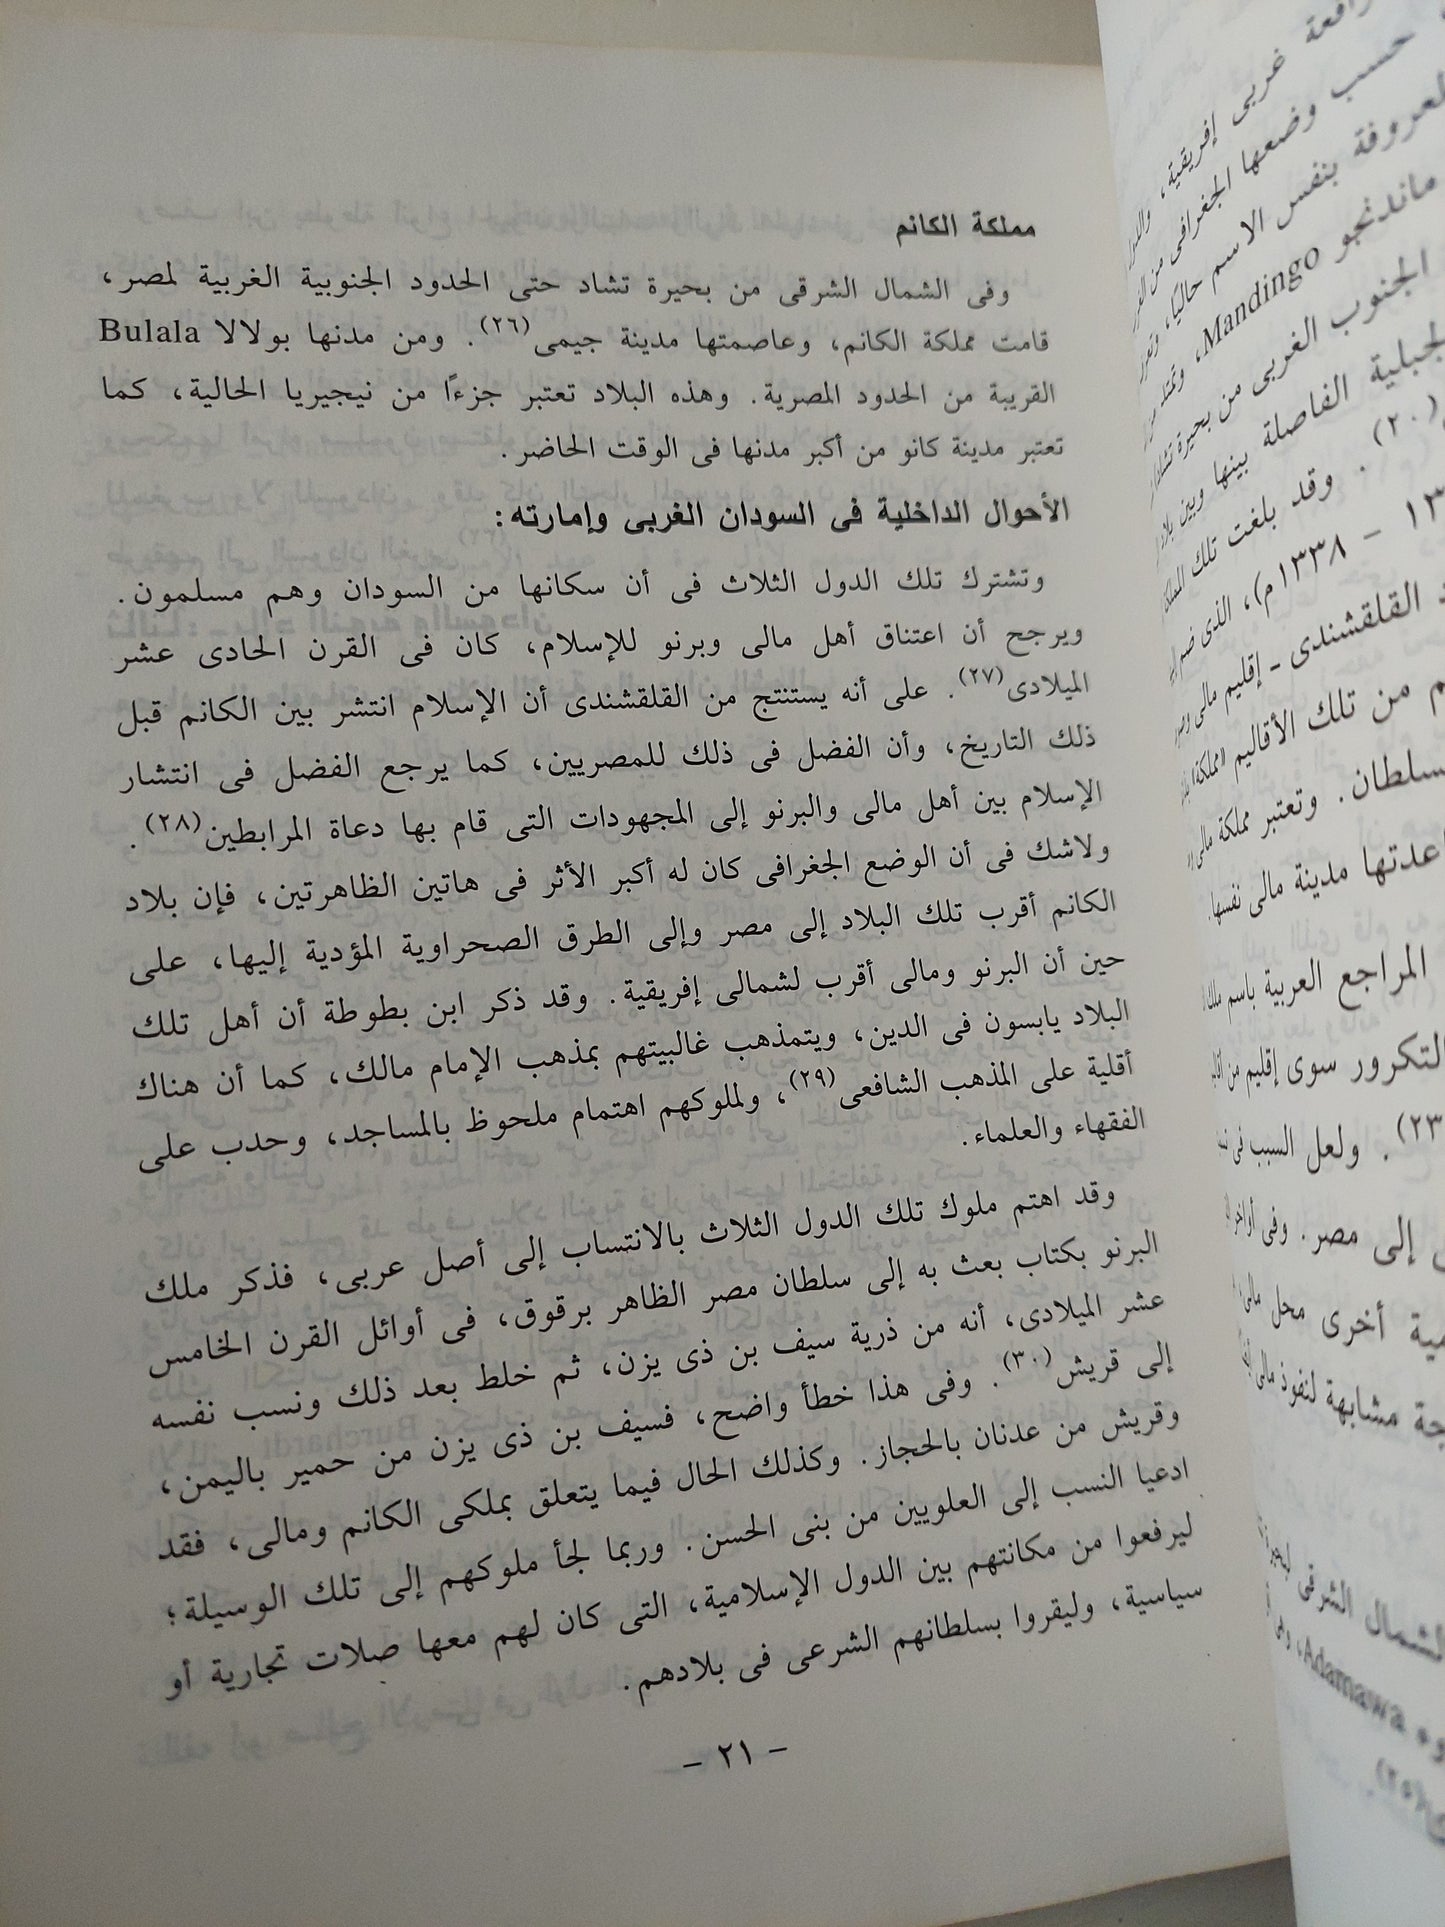 مملكة الكانم
وفى الشمال الشرقى من بحيرة تشاد حتى الحدود الجنوبية الغربية لمصر،
قامت مملكة الكانم، وعاصمتها مدينة جيمى(٢٦). ومن مدنها بولالا Bulala
القريبة من الحدود المصرية. وهذه البلاد تعتبر جزءًا من نيجيريا الحالية، كما
تعتبر مدينة كانو من أكبر مدنها فى الوقت الحاضر.
الأحوال الداخلية فى السودان الغربى وإمارته:
وتشترك تلك الدول الثلاث فى أن سكانها من السودان وهم مسلمون.
ويرجح أن اعتناق أهل مالى وبرنو للإسلام، كان فى القرن الحادى عشر
الميلادى(٢٧). على أنه يستنتج من القلقشندى أن الإسلام انتشر بين الكانم قبل
ذلك التاريخ، وأن الفضل فى ذلك للمصريين، كما يرجع الفضل فى انتشار
الإسلام بين أهل مالى والبرنو إلى المجهودات التى قام بها دعاة المرابطين(٢٨).
ولاشك فى أن الوضع الجغرافى كان له أكبر الأثر فى هاتين الظاهرتين، فإن بلاد
الكانم أقرب تلك البلاد إلى مصر وإلى الطرق الصحراوية المؤدية إليها، على
حين أن البرنو ومالى أقرب لشمالى إفريقية. وقد ذكر ابن بطوطة أن أهل تلك
البلاد يابسون فى الدين، ويتمذهب غالبيتهم بمذهب الإمام مالك، كما أن هناك
أقلية على المذهب الشافعى(٢٩)، ولملوكهم اهتمام ملحوظ بالمساجد، وحدب على
الفقهاء والعلماء.
وقد اهتم ملوك تلك الدول الثلاث بالانتساب إلى أصل عربى، فذكر ملك
البرنو بكتاب بعث به إلى سلطان مصر الظاهر برقوق، فى أوائل القرن الخامس
عشر الميلادى، أنه من ذرية سيف بن ذى يزن، ثم خلط بعد ذلك ونسب نفسه
إلى قريش(٣٠). وفى هذا خطأ واضح، فسيف بن ذى يزن من حمير باليمن،
وقريش من عدنان بالحجاز. وكذلك الحال فيما يتعلق بملكى الكانم ومالى، فقد
ادعيا النسب إلى العلويين من بنى الحسن. وربما لجأ ملوكهم إلى تلك الوسيلة؛
ليرفعوا من مكانتهم بين الدول الإسلامية، التى كان لهم معها صلات تجارية أو
سياسية، وليقروا بسلطانهم الشرعى فى بلادهم.
- ٢١ -
غربى إفريقية،
حسب وضعها الجغرافى من
بنفس الاسم حاليًا،
ماندنجو Mandingo،
الجنوب الغربى من بحيرة تشاد
الفاصلة بينها وبين
(٢٠). وقد بلغت تلك
- ١٣٣٨م)، الذى ضم
القلقشندى - إقليم مالى
من تلك الأقاليم
وتعتبر مملكة مالى
مدينة مالى نفسها.
المراجع العربية باسم
التكرور سوى إقليم من
ولعل السبب فى
إلى مصر. وفى أواخر
أخرى محل مالى
مشابهة لنفوذ مالى
الشرقى
Adamawa،